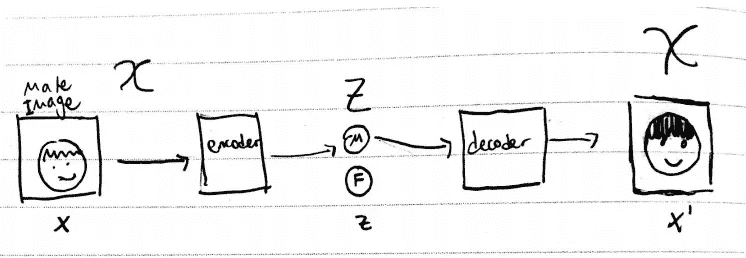 Male
Image
𝒳
Z
𝒳
encoder
M
decoder
F
x
z
x'